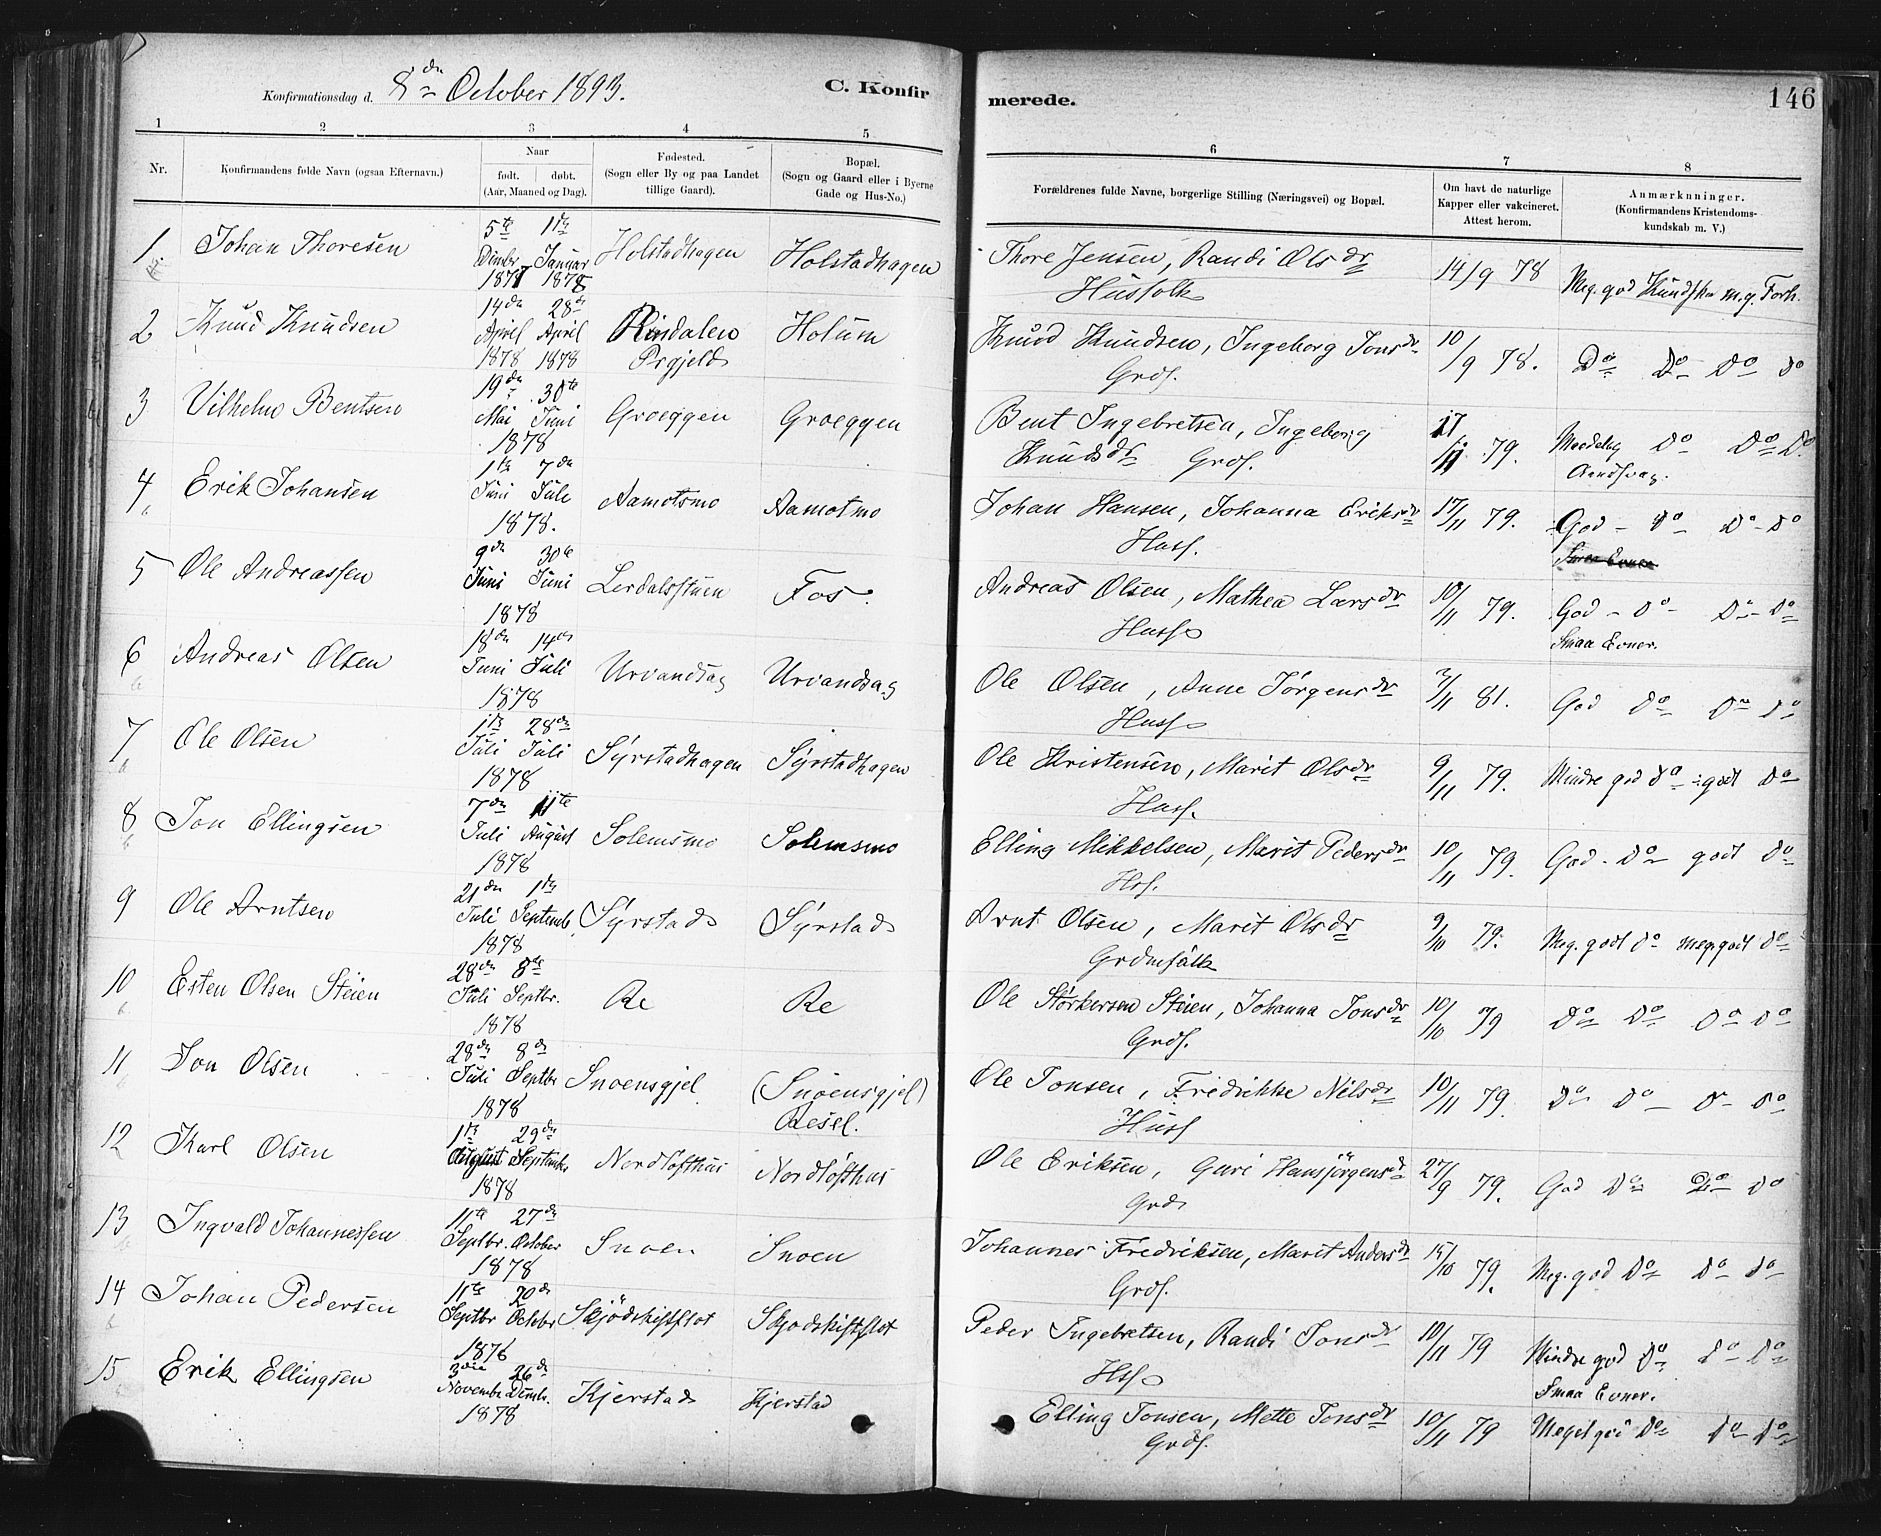 Konfirmationsdag d. 8de October 1893. C. Konfirmerede. 146
1 2 3 4 5 6 7 8
Nr. Konfirmandens fulde Navn (ogsaa Efternavn). Naar født. døbt. (Aar, Maaned og Dag). Fødested. (Sogn eller By og paa Landet tillige Gaard). Bopæl. (Sogn og Gaard eller i Byerne Gade og Hus-No.) Forældrenes fulde Navne, borgerlige Stilling (Næringsvei) og Bopæl. Om havt de naturlige Kopper eller vakcineret. Attest herom. Anmærkninger. (Konfirmandens Kristendomskundskab m. V.)
1. Johan Thoresen 5te Dcmbr 1877 1ste Januar 1878 Holstadhagen Holstadhagen Thore Jensen, Randi Olsdr Husfolk 14/9 78 Meg. god Kundsk. m.g. Forh.
2 Knud Knudsen 14de April 1878 28de April 1878 Rindalen Prgjeld Holum Knud Knudsen, Ingeborg Jonsdr Grdf. 10/9 78. Do Do Do Do
3 Vilhelm Bentsen 19de Mai 30te Juni 1878 Groeggen Groeggen Bent Ingebretsen, Ingeborg Knudsdr Grdf. 17/11 79. Do Do Do Aandsvag.
4 Erik Johansen 1ste Juni 7de Juli 1878. Aamotsmo Aamotmo Johan Hansen, Johanna Eriksdr Husf. 17/11 79. God - Do Do - Do Smaa Evner
5 Ole Andreassen 9de Juni 30te Juni 1878 Lerdalsstuen Fos. Andreas Olsen, Mathea Larsdr Husf 10/11 79. God - Do - Do - Do Smaa Evner.
6 Andreas Olsen 18de Juni 14de Juli 1878 Urvandsag Urvandsag Ole Olsen, Anne Jørgensdr Husf 2/11 81. God Do Do Do
7 Ole Olsen 1ste Juli 28de Juli 1878 Syrstadhagen Syrstadhagen Ole Kristensen, Marit Olsdr Husf. 9/11 79. Mindre god Do godt Do
8 Jon Ellingsen 7de Juli 11te August 1878 Solemsmo Solemsmo Elling Mikkelsen, Marit Pedersdr Hsf. 10/11 79. God - Do godt Do
9 Ole Arntsen 21de Juli 1ste Septemb 1878 Syrstad Syrstad Arnt Olsen, Marit Olsdr Grdmfolk 9/10 79. Meg. godt Do meg. godt Do
10 Esten Olsen Steien 28de Juli 8de Septbr. 1878 Re Re Ole Størkersen Steien, Johanna Jonsdr Grdf. 10/10 79 Do Do Do Do
11 Jon Olsen 28de Juli 8de Septbr 1878 Snoensgjel (Snoensgjel) Resel. Ole Jonsen, Fredrikke Nilsdr Husf 10/11 79. Do Do Do Do
12 Karl Olsen 1ste August 29de Septembr 1878 Nordløfthus Nordløfthus Ole Eriksen, Guri Hansjørgensdr Grd 27/9 79. God Do Do Do
13 Ingvald Johannessen 11te Septbr. 27de October 1878 Snoen Snoen Johannes Fredriksen, Marit Andersdr Grdf. 15/10 79. Meg. god Do Do Do
14 Johan Pedersen 11te Septbr 20de Octobr 1878 Skjødskiftflot Skjodskiftflot Peder Ingebretsen, Randi Jonsdr Hsf 10/11 79 Mindre god Do Do Do Smaa Evner.
15 Erik Ellingsen 3die Novembr 26de Dcmbr. 1878 Kjerstad Kjerstad Elling Jonsen, Mette Jonsdr Grdf. 10/11 79 Meget god Do Do Do